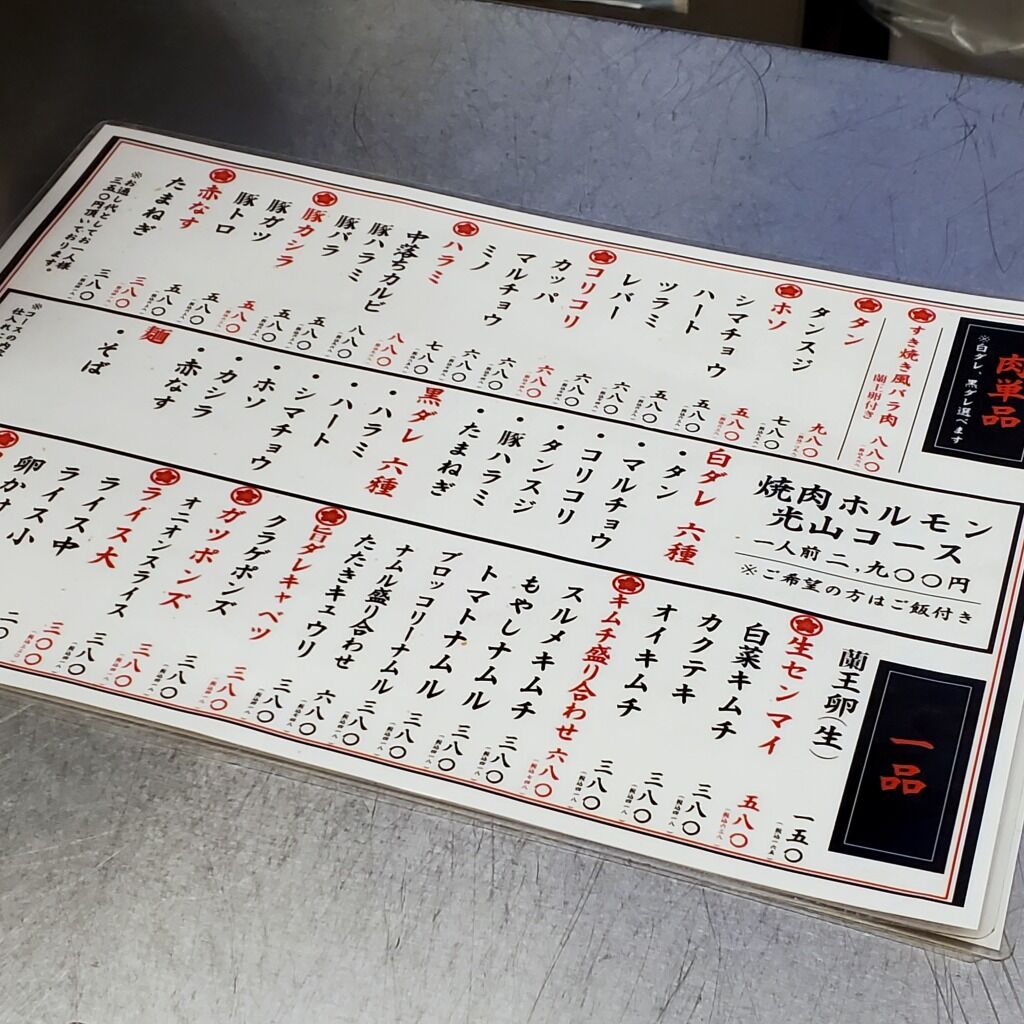 肉単品
※白ダレ、黒ダレ選べます
すき焼き風バラ肉 八八〇
蘭王卵付き
タン 九八〇
タンスジ 七八〇
ホソ 五八〇
シマチョウ 五八〇
ハート 五八〇
ツラミ 六八〇
レバー 六八〇
コリコリ 六八〇
カッパ 六八〇
マルチョウ 六八〇
ミノ 七八〇
ハラミ 八八〇
中落ちカルビ 八八〇
豚ハラミ 五八〇
豚バラ 五八〇
豚カシラ 五八〇
豚ガツ 五八〇
豚トロ 五八〇
赤なす 三八〇
たまねぎ 三八〇
※お通し代としてお一人様
三五〇円頂いております。
焼肉ホルモン
光山コース
一人前二,九〇〇円
※ご希望の方はご飯付き
白ダレ 六種
・タン
・マルチョウ
・コリコリ
・タンスジ
・豚ハラミ
・たまねぎ
黒ダレ 六種
・ハラミ
・ハート
・シマチョウ
・ホソ
・カシラ
・赤なす
麺
・そば
※コースの内
仕入れ
一品
蘭王卵(生) 一五〇
生センマイ 五八〇
白菜キムチ 三八〇
カクテキ 三八〇
オイキムチ 三八〇
キムチ盛り合わせ 六八〇
スルメキムチ 三八〇
もやしナムル 三八〇
トマトナムル 三八〇
ブロッコリーナムル 三八〇
ナムル盛り合わせ 六八〇
たたきキュウリ 三八〇
旨ダレキャベツ 三八〇
クラゲポンズ 三八〇
ガツポンズ 三八〇
オニオンスライス 三八〇
ライス大 三〇〇
ライス中
ライス小
卵かけ